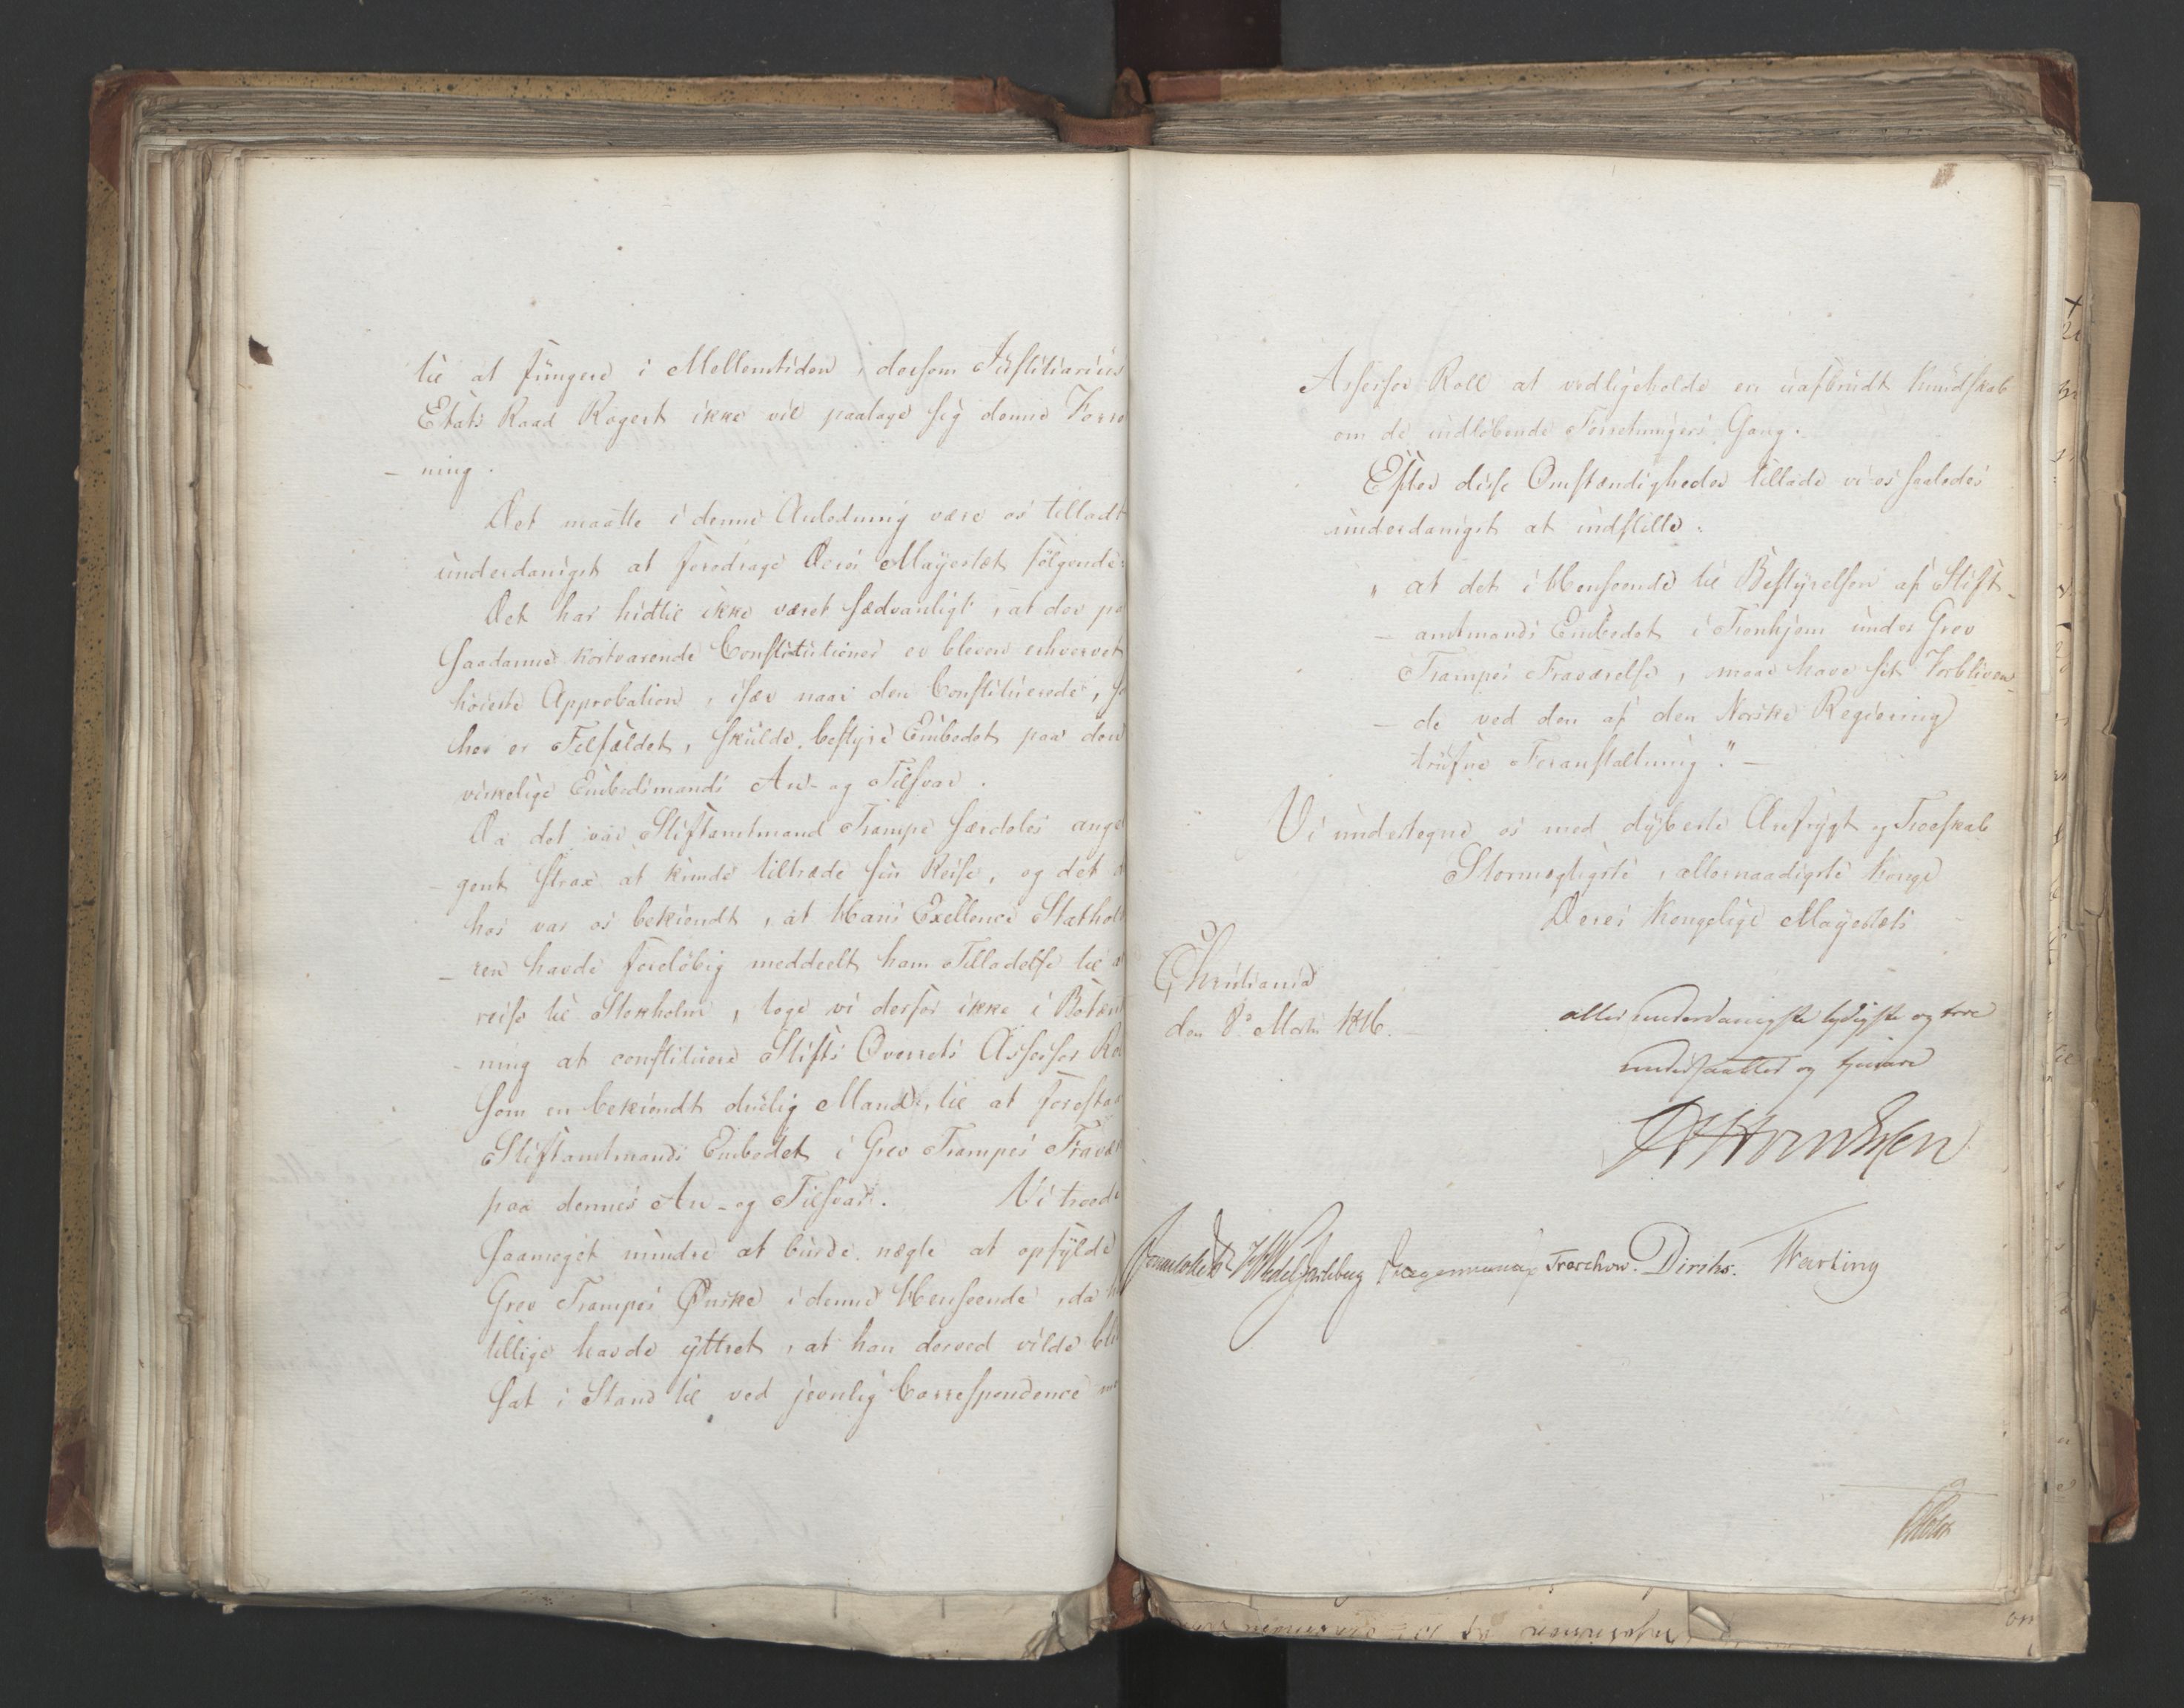 til at fungere i Mellemtiden, dersom Justitiarius
Etats Raad Rogert ikke vil paatage sig denne Forre
- ning.
Det maatte i denne Anledning være os tilladt
underdanigst at foredrage Deres Mayestæt følgende:
Det har hidtil ikke været sædvanligt, at der paa
saadanne kortvarende Constitutioner er bleven erhvervet
høieste Approbation, især naar den Constituerede, so
her er Tilfældet, skulde bestyre Embedet paa den
virkelige Embedsmands An- og Tilsvar.
Da det var Stiftamtmand Trampe særdeles ange
- gent strax at kunde tiltræde sin Reise, og det d
hos var os bekiendt, at Hans Exellence Statholde
- ren havde foreløbig meddeelt ham Tilladelse til a
reise til Stokholm, toge vi derfor ikke i Betænk
- ning at constituere Stifts Overrets Assessor Rol
som en bekiendt duelig Mand, til at forestaae
Stiftamtmands Embedet i Grev Trampes Fravær
paa dennes An- og Tilsvar. Vi troede
saameget mindre at burde nægte at opfylde
Grev Trampes Ønske i denne Henseende, da h
tillige havde yttret, at han derved vilde bli
sat i Stand til ved jevnlig Correspondence me
Assessor Roll at vedligeholde en uafbrudt Kundskab
om de indløbende Forretningers Gang.
Efter disse Omstændigheder tillade vi os saaledes
underdanigst at indstille:
" at det i Henseende til Bestyrelsen af Stift-
- amtmands Embedet i Tronhjem under Grev
Trampes Fraværelse, maae have sit Forbliven-
- de ved den af den Norske Regiering
trufne Foranstaltning." -
Vi undertegne os med dybeste Ærefrygt og Troeskab
Stormægtigste, allernaadigste Konge
Deres Kongelige Mayestæts
Christiania
den 8de Marts 1816.
allerunderdanigste lydigste og troe
undersaatter og tjenere
Sommerhielm HWedelJarlsberg Treschow. Diriks. Hartung